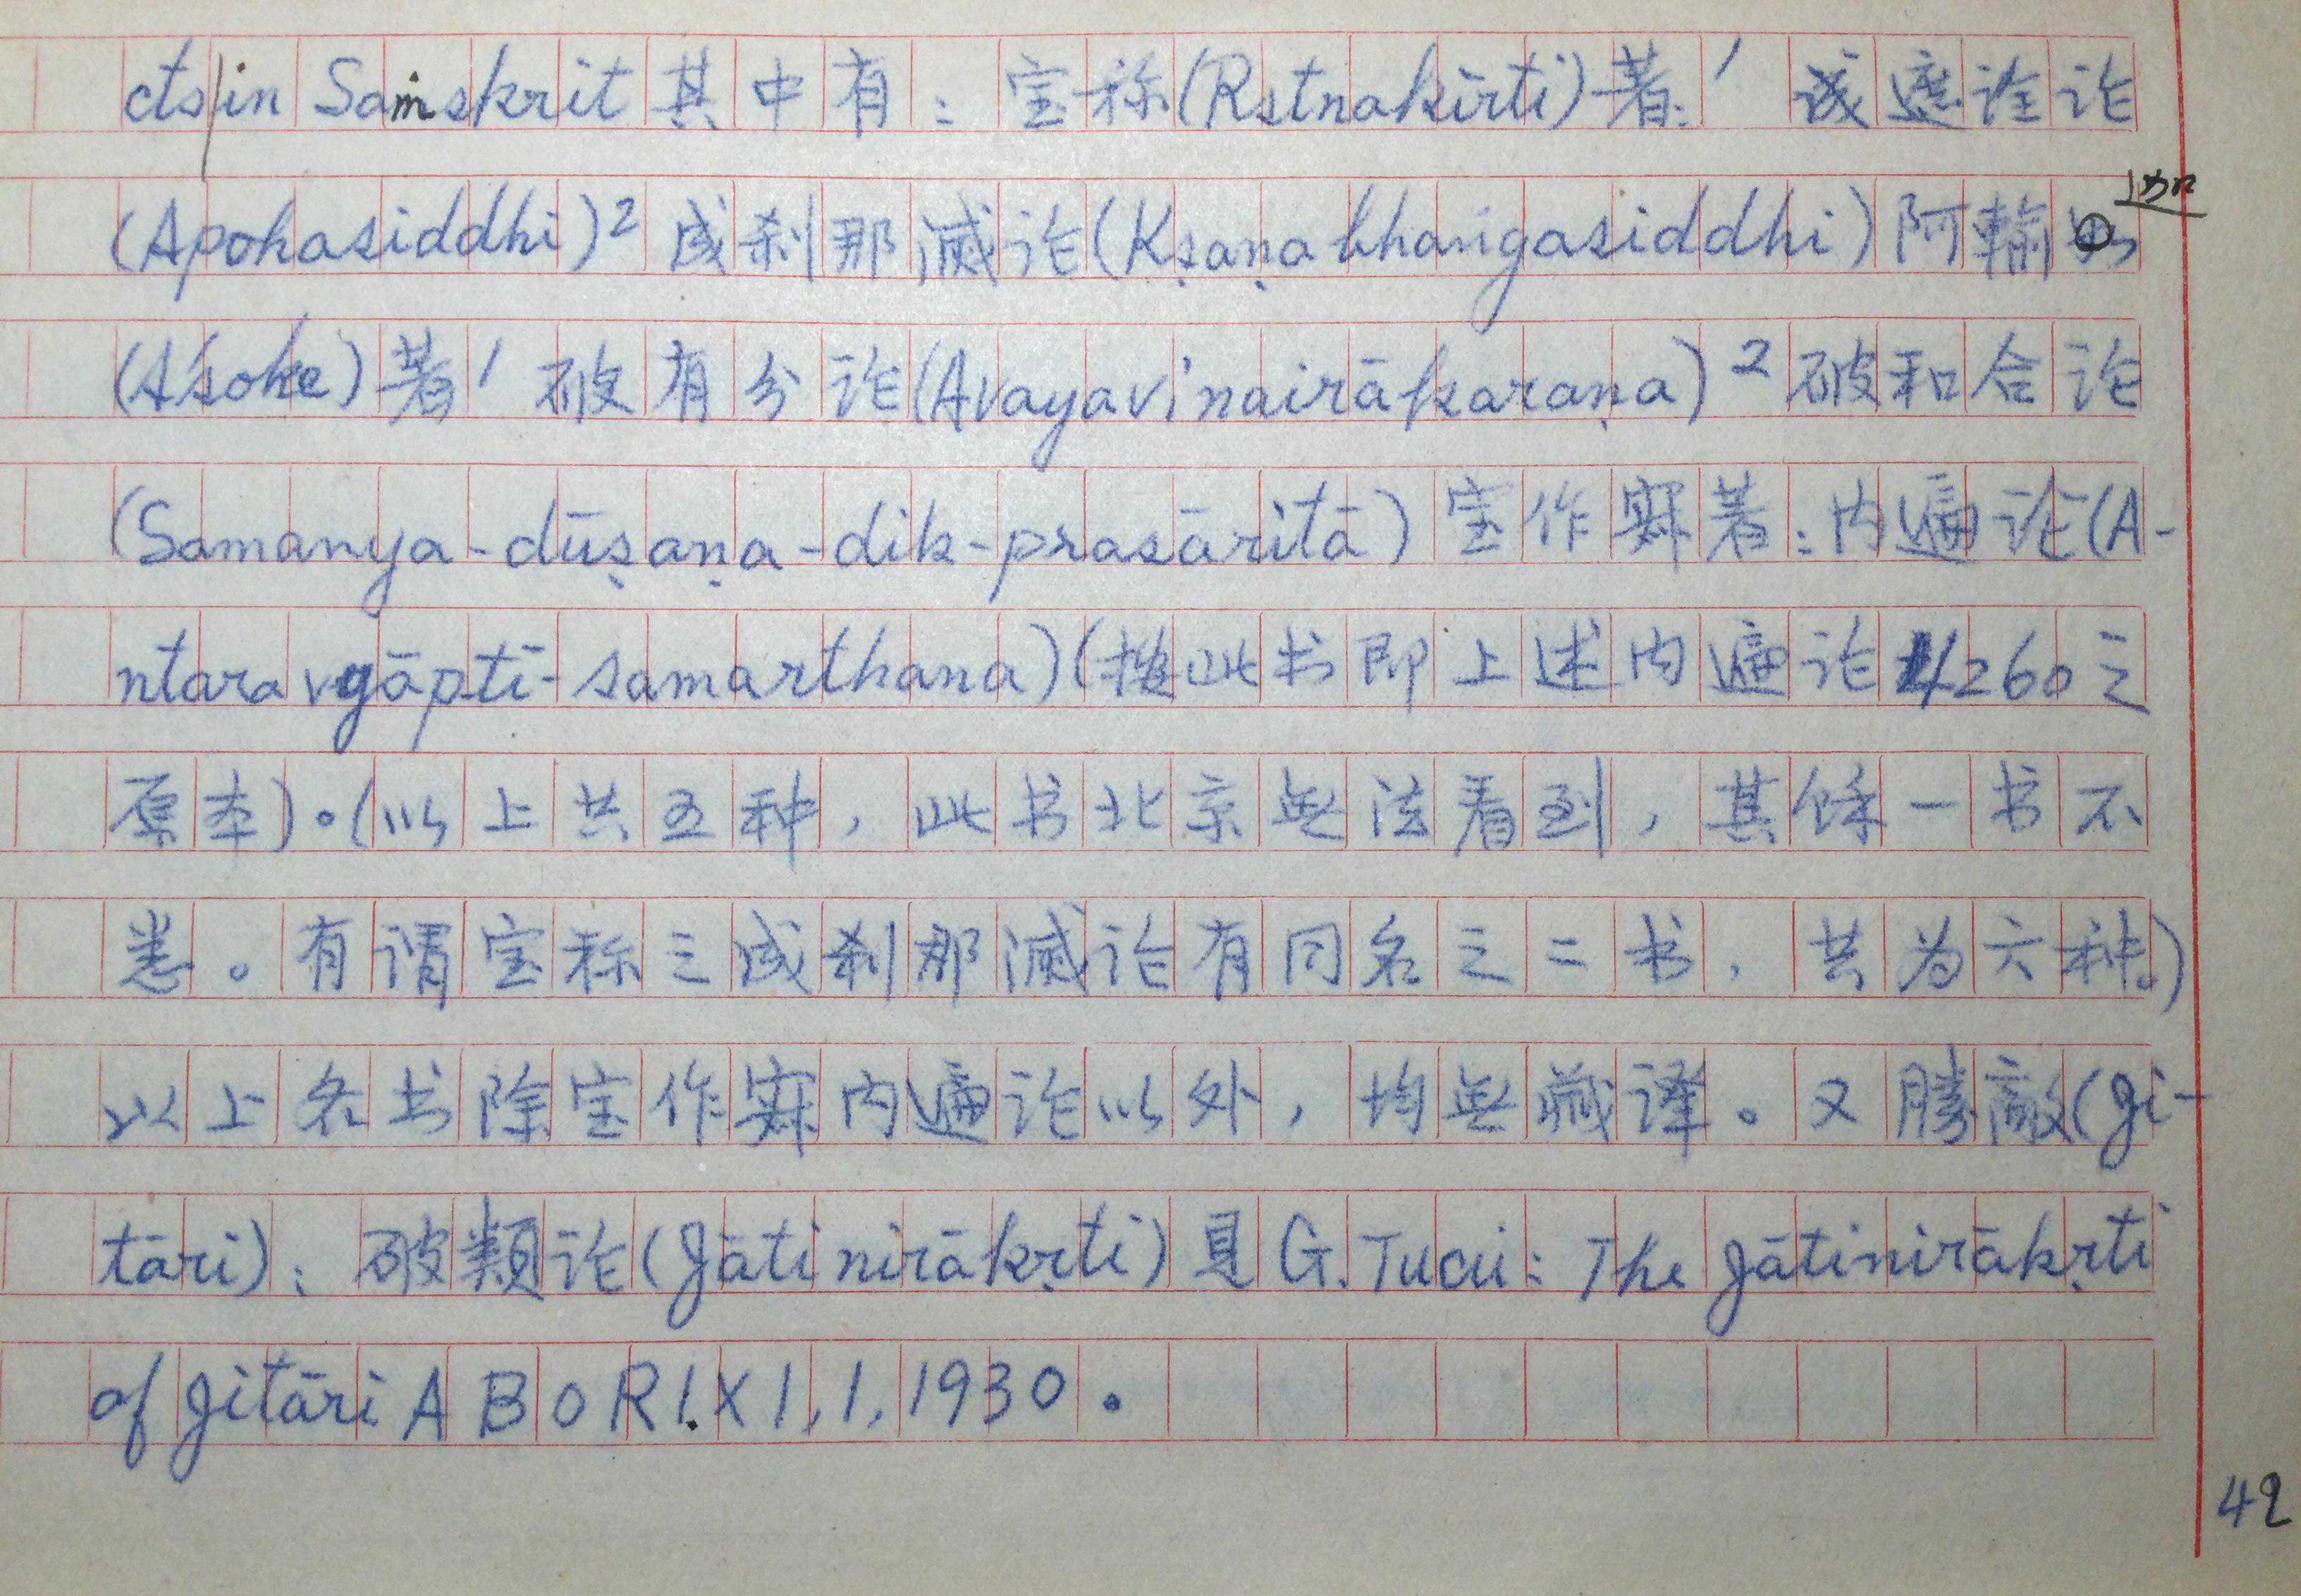 cts in Saṁskrit 其中有：宝称(Rstnakīrti)著1 诚遮诠论
(Apohasiddhi)2 成刹那滅论(Kṣaṇabhaṅgasiddhi)阿輸加
(Aśoke)著1 破有分论(Avayavinairākaraṇa)2破和合论
(Samanya-dūṣaṇa-dik-prasāritā)宝作寂著：内遍论(A-
ntaravyāpti-samarthana)(按此书即上述内遍论4260之
原本)。(以上共五种，此书北京無法看到，其馀一书不
悉。有谓宝称之成刹那滅论有同名之二书，共为六种。)
以上各书除宝作寂内遍论以外，均無藏译。又勝敵(Ji-
tāri)：破類论(Jātinirākṛti)見G.Tucci: The Jātinirākṛti
of Jitāri ABORI.XI,1,1930。
42